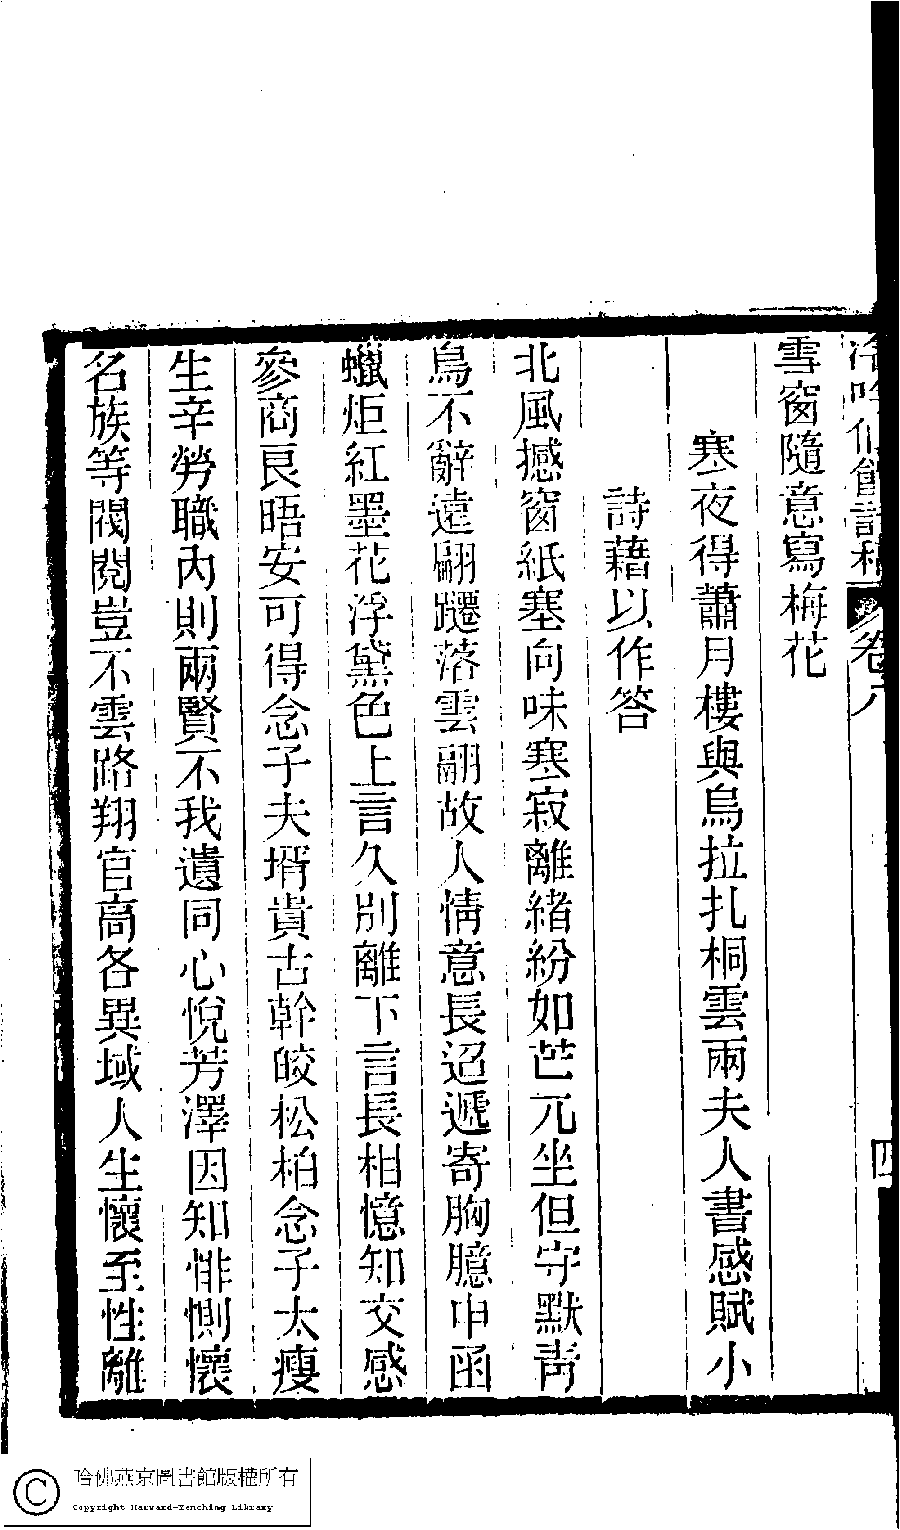 冷吟仙館詩稿 卷八 四
雪窗隨意寫梅花
寒夜得蕭月樓與烏拉扎桐雲兩夫人書感賦小
詩藉以作答
北風撼窗紙塞向味寒寂離緒紛如芒兀坐但守默靑
鳥不辭遠翩躚落雲翮故人情意長迢遞寄胸臆申函
蠟炬紅墨花浮黛色上言久別離下言長相憶知交感
參商良晤安可得念子夫壻貴古幹皎松柏念子太瘦
生辛勞職內則兩賢不我遺同心悅芳澤因知悱惻懷
名族等閥閱豈不雲路翔官高各異域人生懷至性離
哈佛燕京圖書館版權所有
Copyright Harvard-Yenching Library